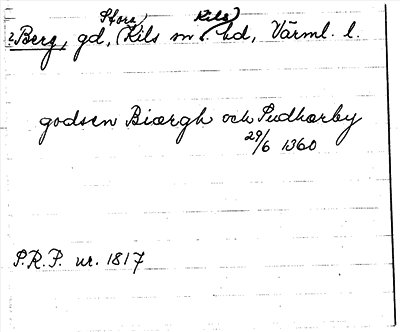 Stora Kils
? Berg, gd, (Kils sn) hd, Värml. l.
godsen Biærgh och Pudhærby
29/6 1360
P.R.P. nr. 1817